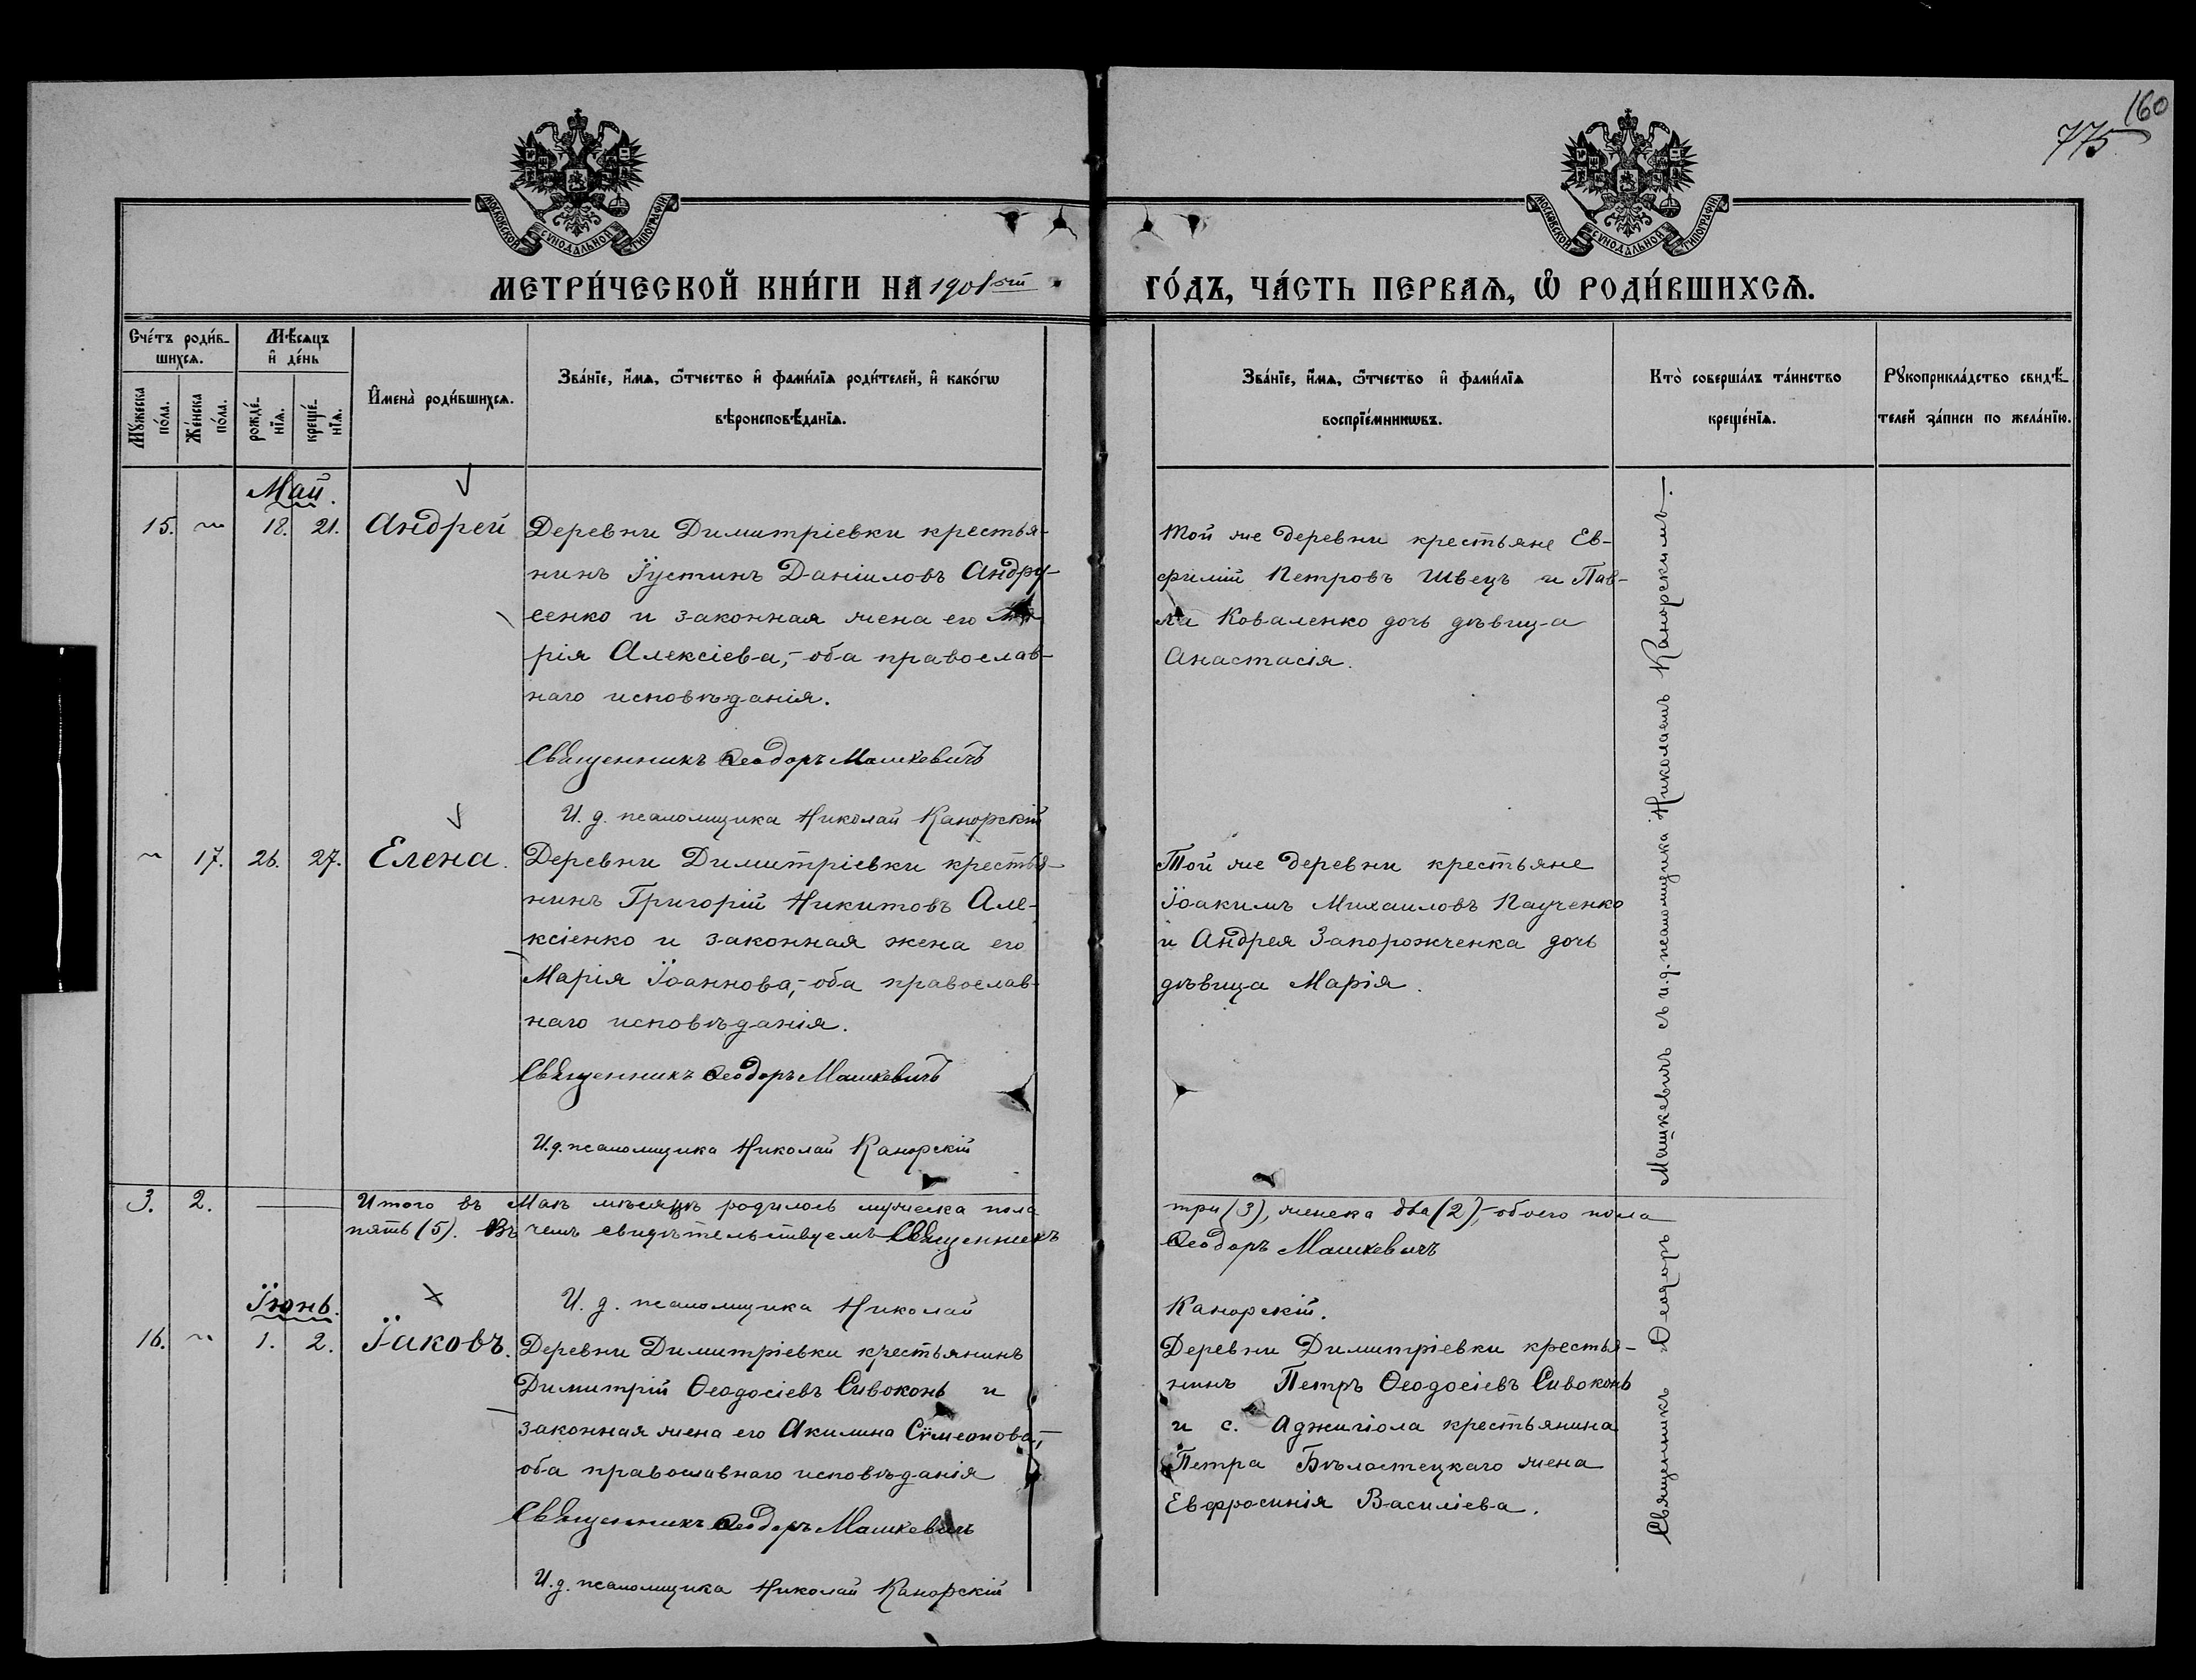 160
775
МОСКОВСКОЙ СУНОДАЛЬНОЙ ТИПОГРАФІИ
МОСКОВСКОЙ СУНОДАЛЬНОЙ ТИПОГРАФІИ
МЕТРИ́ЧЕСКОЙ КНИ́ГИ НА 1901ый
ГО́ДЪ, ЧА́СТЬ ПЕРВАѦ, Ѡ҆ РОДИ́ВШИХСѦ.
Сче́тъ роди́в-
шихсѧ.
Мꙋ́жеска по́ла.
Же́нска по́ла.
Мѣ́сѧцъ
и҆ де́нь
рожде́-
нїѧ.
креще́-
нїѧ.
И҆мена̀ роди́вшихсѧ.
Зва́нїе, и҆́мѧ, ѻ҆́тчество и҆ фами́лїѧ роди́телей, и҆ како́гѡ
вѣроисповѣ́данїѧ.
Зва́нїе, и҆́мѧ, ѻ҆́тчество и҆ фами́лїѧ
воспрїе́мникѡвъ.
Кто̀ соверша́лъ та́инство
креще́нїѧ.
Рꙋкоприкла́дство свидѣ́-
телей за́писи по жела́нїю.
Май.
15. 18. 21. Андрей
Деревни Димитріевки крестья-
нинъ Іустинъ Даніиловъ Андру-
сенко и законная жена его Ма
рія Алексіева,- оба православ-
наго исповѣданія.
Священникъ Ѳеодоръ Машкевичъ
И. д. псаломщика Николай Канорскій
Той же деревни крестьяне Ев-
фимій Петровъ Швецъ и Пав-
ла Коваленко дочь дѣвица
Анастасія.
17. 26. 27. Елена.
Деревни Димитріевки крестья-
нинъ Григорій Никитовъ Але-
ксіенко и законная жена его
Марія Іоаннова,- оба православ-
наго исповѣданія.
Священникъ Ѳеодоръ Машкевичъ
И. д. псаломщика Николай Канорскій
Той же деревни крестьяне
Іоакимъ Михаиловъ Паученко
и Андрея Запорожченка дочь
дѣвица Марія.
3. 2. Итого въ Маѣ мѣсяцѣ родилось мужеска пола
три (3), женска два (2),- обоего пола
пять (5). Въ чемъ свидѣтельствуемъ Священникъ
Ѳеодоръ Машкевичъ
И. д. псаломщика Николай
Канорскій.
Іюнь.
16. 1. 2. Іаковъ.
Деревни Димитріевки крестьянинъ
Димитрій Ѳеодосіевъ Сивоконь и
законная жена его Акилина Сѵмеонова,-
оба православнаго исповѣданія
Священникъ Ѳеодоръ Машкевичъ
И. д. псаломщика Николай Канорскій
Деревни Димитріевки крестья-
нинъ Петръ Ѳеодосіевъ Сивоконь
и с. Аджигіола крестьянина
Петра Бѣлостецкаго жена
Евфросинія Василіева.
Священникъ Ѳеодоръ Машкевичъ съ и. д. псаломщика Николаемъ Канорскимъ.